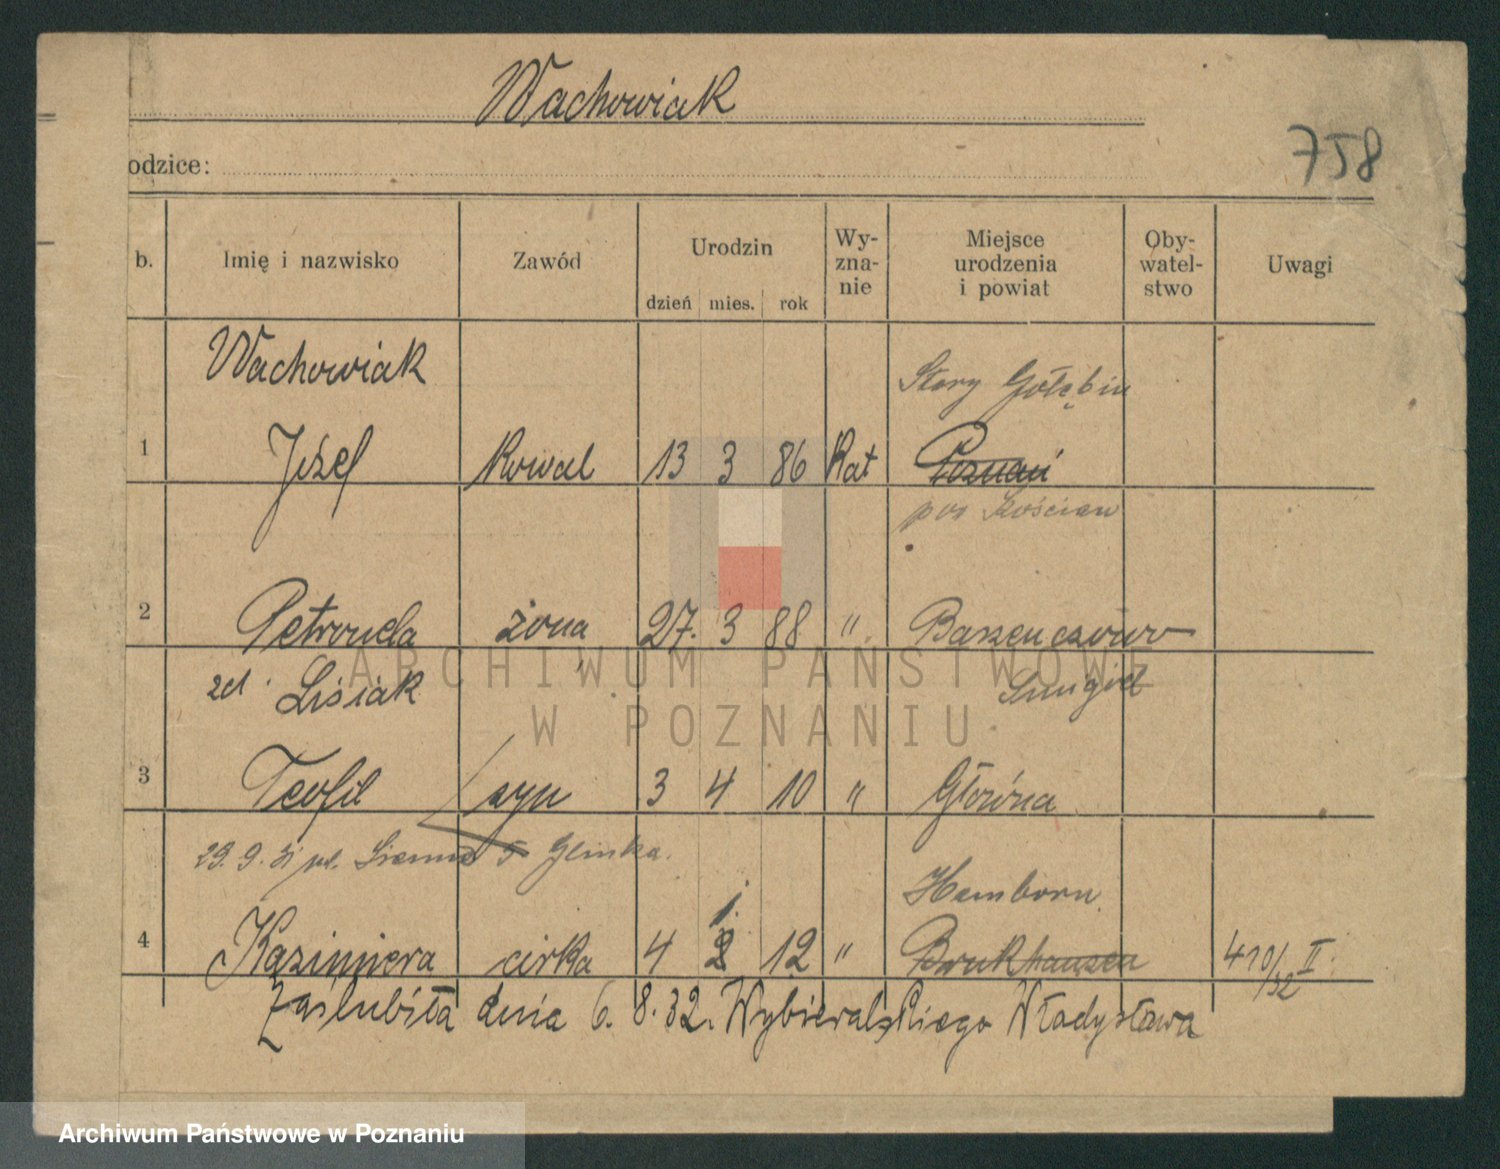 Wachowiak
758
odzice:
b. Imię i nazwisko Zawód Urodzin dzień mies. rok Wy-zna-nie Miejsce urodzenia i powiat Oby-watel-stwo Uwagi
Wachowiak Stary Gołębin
1 Józef Kowal 13 3 86 Kat Poznań
pow Kościan
2 Petronela żona 27. 3 88 " Barzenczewo
zd. Lisiak Smigiel
ARCHIWUM PAŃSTWOWE
W POZNANIU
3 Teofil syn 3 4 10 " Główna
29. 9. 31 5 Glinka.
Hamborn
4 Kazimiera cirka 4 1. 12 " Bruckhausen 410/32 II.
Zaślubiła dnia 6. 8. 32. Wybieralskiego Władysława
Archiwum Państwowe w Poznaniu